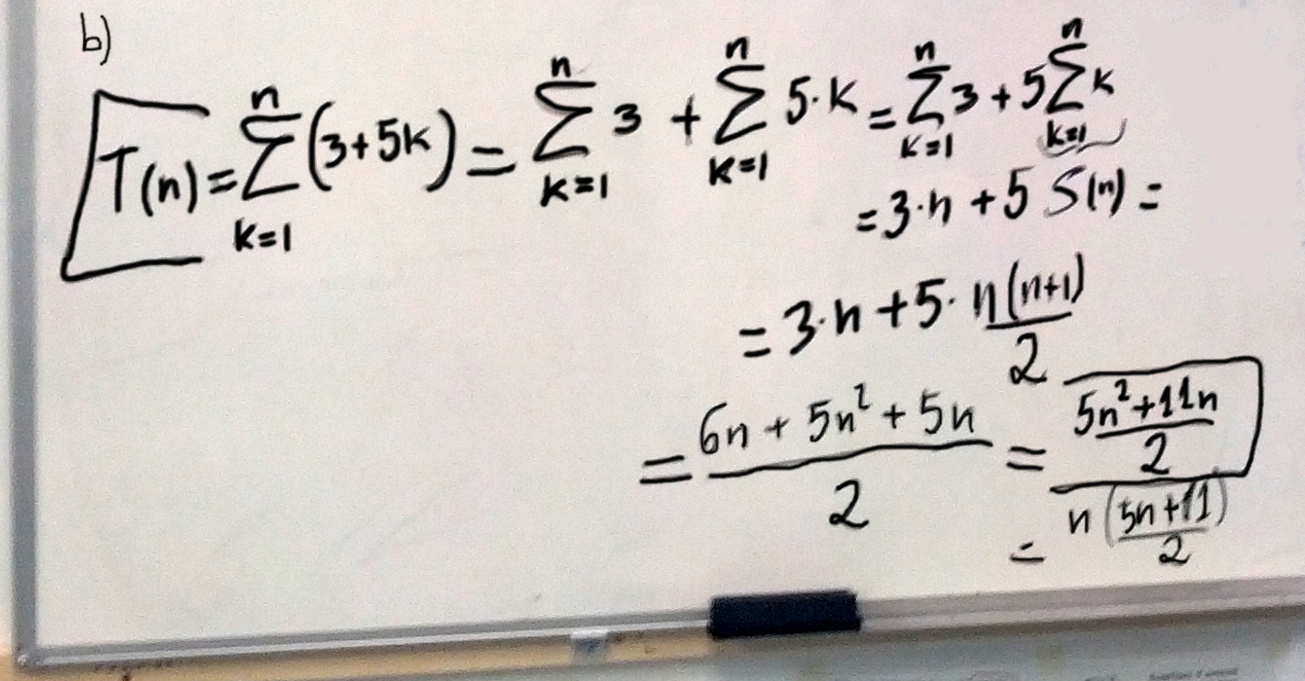 b)
T(n) = \sum_{k=1}^{n} (3+5k) = \sum_{k=1}^{n} 3 + \sum_{k=1}^{n} 5·k = \sum_{k=1}^{n} 3 + 5 \sum_{k=1}^{n} k
= 3·n + 5 S(n) =
= 3·n + 5· \frac{n(n+1)}{2}
= \frac{6n + 5n^2 + 5n}{2} = \frac{5n^2+11n}{2}
= n \frac{(5n+11)}{2}